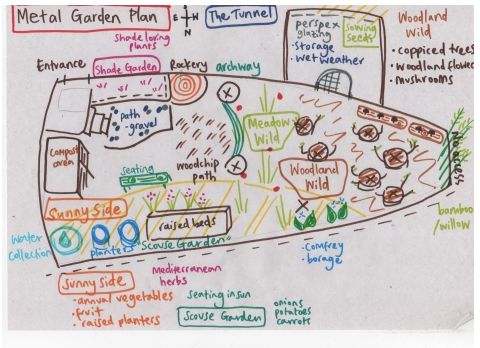 Metal Garden Plan
N
E
W
S
The Tunnel
perspex
glazing
• storage
• wet weather
sowing
seeds
Woodland
Wild
• coppiced trees
• woodland flowers
• mushrooms
shade loving
plants
Entrance
Shade Garden
Rockery
archway
path
-gravel
compost
area
seating
woodchip
path
Meadow
Wild
Woodland
Wild
bamboo
/willow
Sunny Side
water
collection
planters
raised beds
"Scouse Garden"
• comfrey
• borage
Sunny side
• annual vegetables
• fruit
• raised planters
Mediterranean
herbs
seating in sun
Scouse Garden
onions
potatoes
carrots